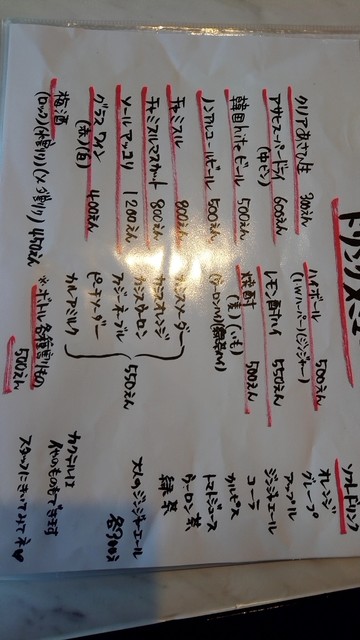 ドリンクメニュー
クリアあさひ生 300えん
アサヒスーパードライ 600えん
(中ビン)
韓国hiteビール 500えん
ノンアルコールビール 500えん
チャミスル 800えん
チャミスルマスカット 800えん
ソールマッコリ 1200えん
グラスワイン
(赤/白) 400えん
梅酒
(ロック)(水割り)(ソーダ割り) 450えん
ハイボール 500えん
(I.Wハーパー)(ジンジャー)
レモン酎ハイ 550えん
焼酎 500えん
(麦)(いも)
(ウーロンハイ)(緑茶ハイ)
カシスソーダー
カシスオレンジ
カシスウーロン
ファジーネーブル
ピーチソーダー
カルアミルク
550えん
※ボトル各種割もの
500えん
ソフトドリンク
オレンジ
グレープ
アップル
ジンジャエール
コーラ
カルピス
トマトジュース
ウーロン茶
緑茶
大人のジンジャーエール
各300えん
カクテルは
他のものもできます
スタッフにきいて下さいネ♥